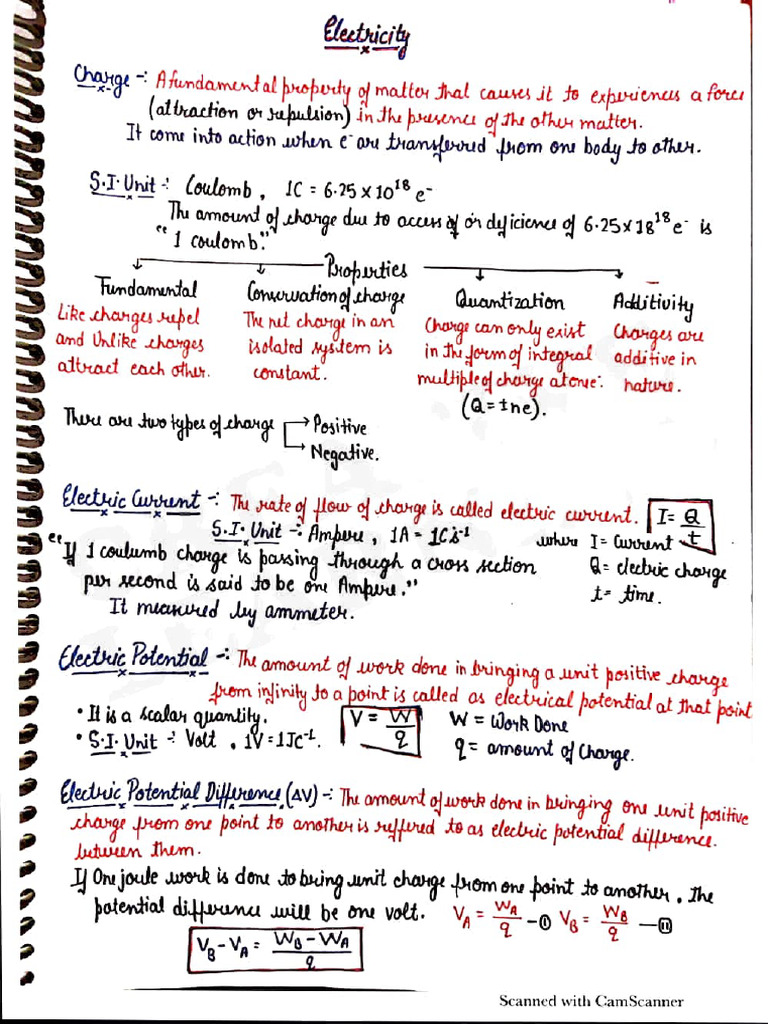 Electricity
Charge -: A fundamental property of matter that causes it to experiences a force
(attraction or repulsion) in the presence of the other matter.
It come into action when e⁻ are transferred from one body to other.
S.I. Unit -: Coulomb, 1C = 6.25 × 10¹⁸ e⁻
The amount of charge due to access of or deficience of 6.25 × 18¹⁸ e⁻ is
"1 coulomb."
Properties
Fundamental
Like charges repel
and Unlike charges
attract each other.
Conservation of charge
The net charge in an
isolated system is
constant.
Quantization
Charge can only exist
in the form of integral
multiple of charge atone⁻.
(Q = ±ne).
Additivity
Charges are
additive in
nature.
There are two types of charge
Positive
Negative.
Electric Current -: The rate of flow of charge is called electric current. I = Q/t
S.I. Unit -: Ampere, 1A = 1Cs⁻¹
where I = Current
"If 1 coulumb charge is passing through a cross section
Q = electric charge
per second is said to be one Ampere."
t = time.
It measured by ammeter.
Electric Potential -: The amount of work done in bringing a unit positive charge
from infinity to a point is called as electrical potential at that point
• It is a scalar quantity.
• S.I. Unit -: Volt, 1V = 1JC⁻¹.
V = W/q
W = Work Done
q = amount of Charge.
Electric Potential Difference (ΔV) -: The amount of work done in bringing one unit positive
charge from one point to another is reffered to as electric potential difference
between them.
If One joule work is done to bring unit charge from one point to another, the
potential difference will be one volt. V_A = W_A/q -① V_B = W_B/q -⑪
V_B - V_A = W_B - W_A/q
Scanned with CamScanner